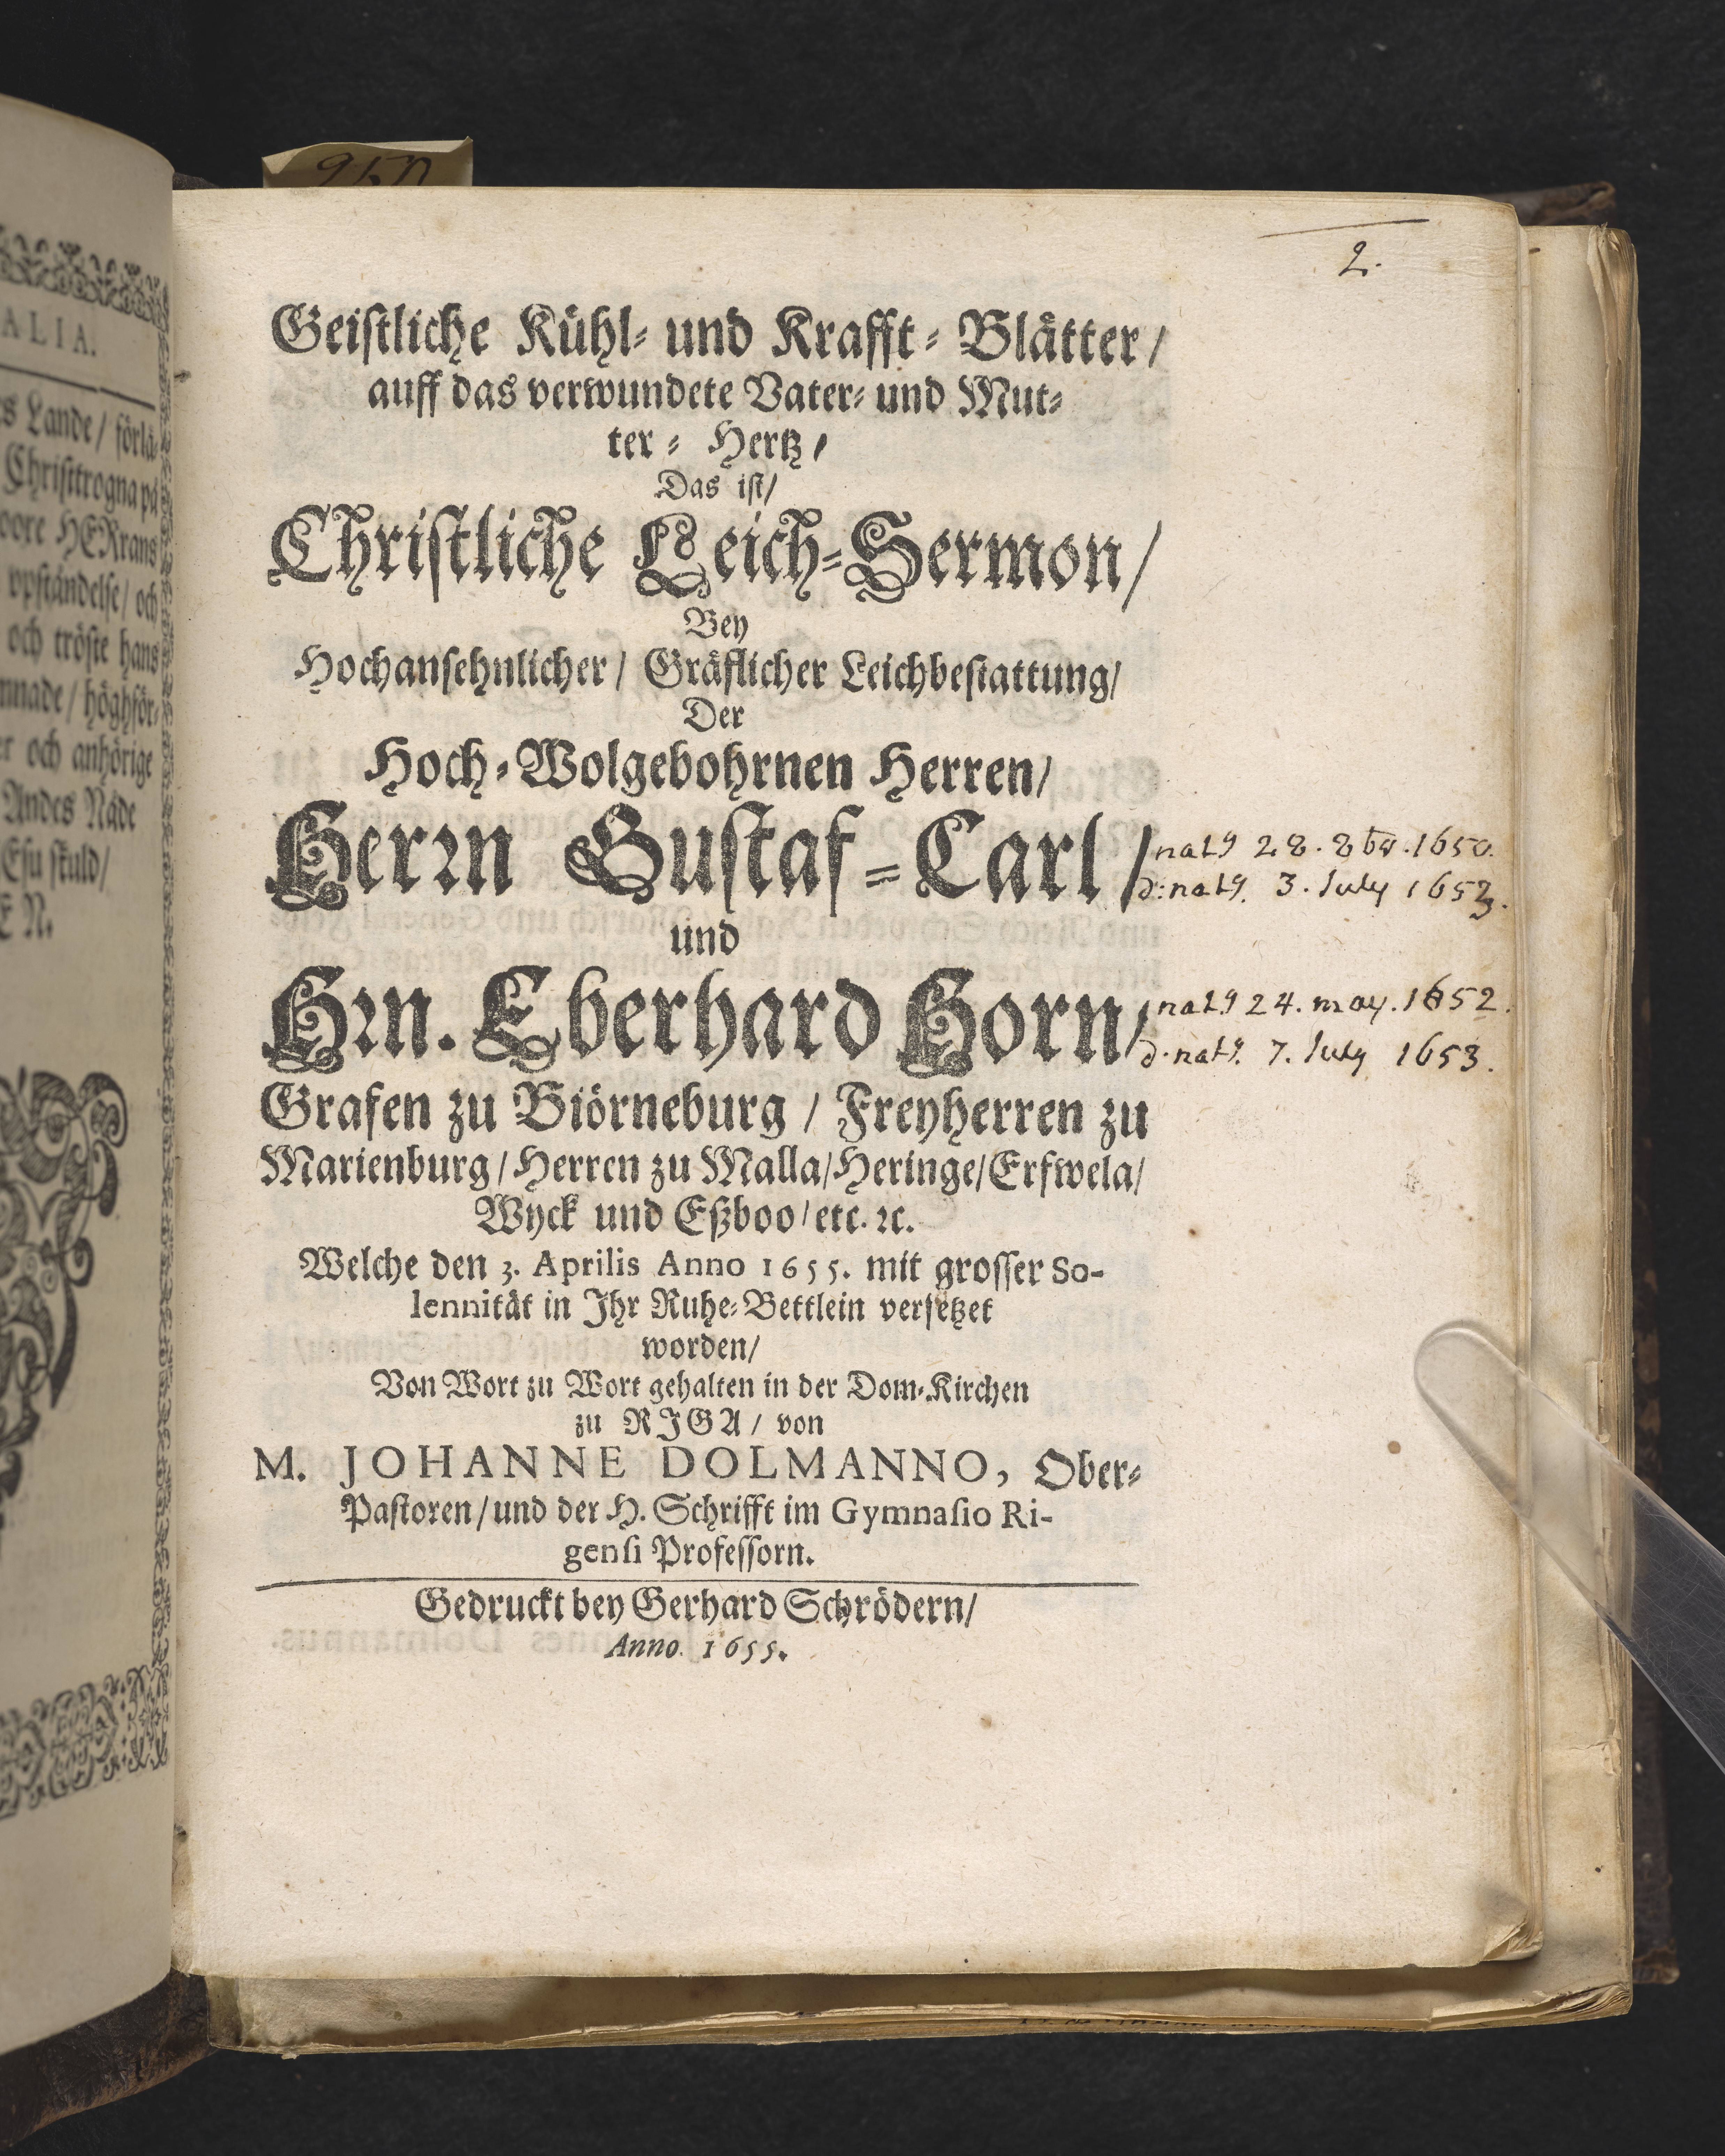 950
ALIA.
es Lande/ förlä-
Christtrogna på
oore HERrans
ppståndelse/ och
och tröste hans
mnade/ höghför-
er och anhörige
Andes Nåde
Esu skuld/
E N.
2.
Geistliche Kühl- und Krafft- Blätter/
auff das verwundete Vater- und Mut-
ter- Hertz/
Das ist/
Christliche Leich-Sermon/
Bey
Hochansehnlicher/ Gräflicher Leichbestattung/
Der
Hoch-Wolgebohrnen Herren/
Herrn Gustaf-Carl/
nat9 28. 8br. 1650.
d: nat9. 3. July 1653.
und
Hrn. Eberhard Horn/
nat9 24. may. 1652.
d. nat9. 7. July 1653.
Grafen zu Biörneburg/ Freyherren zu
Marienburg/ Herren zu Malla/ Heringe/ Erfwela/
Wyck und Eßboo/ etc. ꝛc.
Welche den 3. Aprilis Anno 1655. mit grosser So-
lennität in Ihr Ruhe-Bettlein versetzet
worden/
Von Wort zu Wort gehalten in der Dom-Kirchen
zu RIGA/ von
M. JOHANNE DOLMANNO, Ober-
Pastoren/ und der H. Schrifft im Gymnasio Ri-
gensi Professorn.
Gedruckt bey Gerhard Schrödern/
Anno 1655.